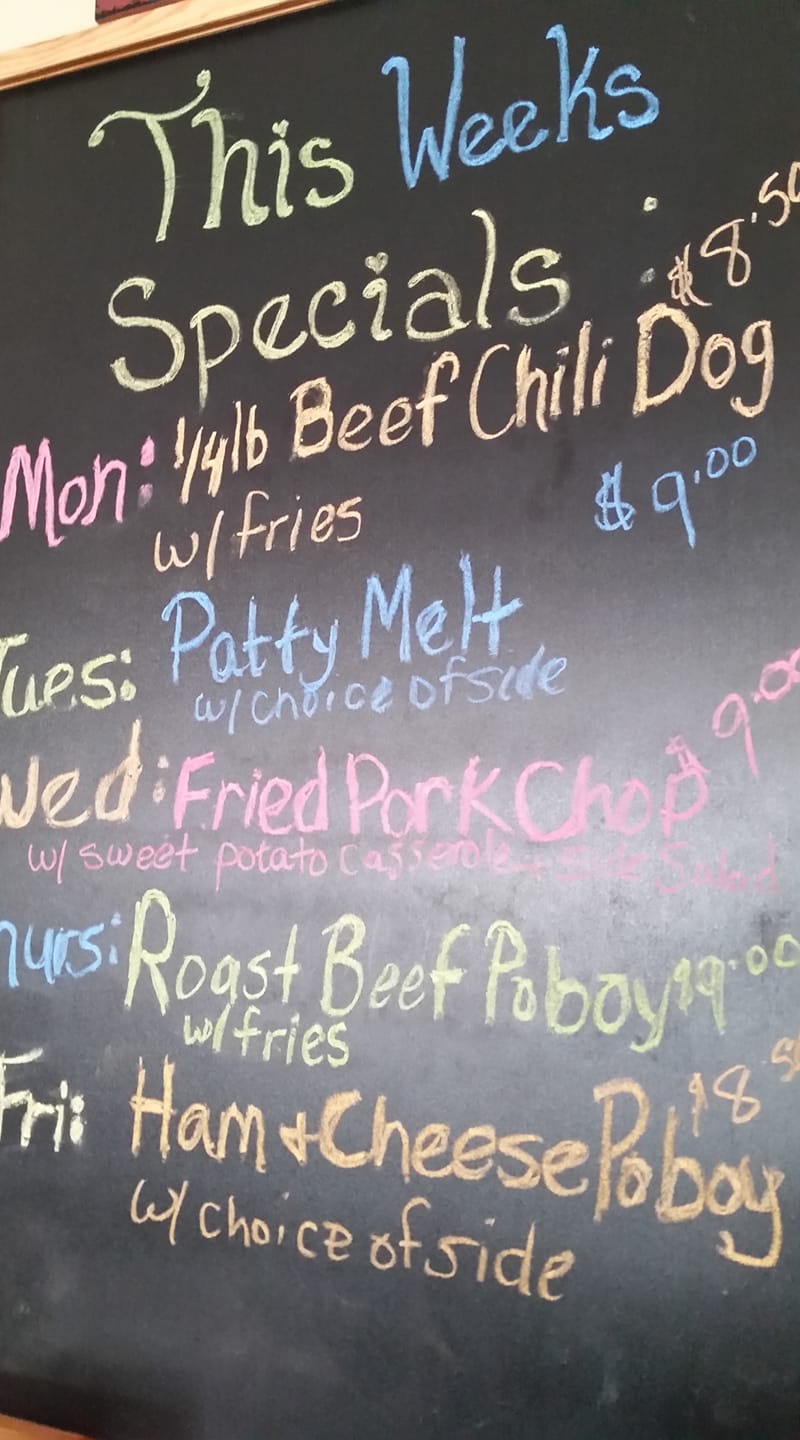 This Weeks
Specials :
$8.50
Mon: 1/4lb Beef Chili Dog
w/ fries
$9.00
Tues: Patty Melt
w/ choice of side
$9.00
Wed: Fried Pork Chop
w/ sweet potato casserole + side Salad
hurs: Roast Beef Poboy $9.00
w/ fries
$8.50
Fri: Ham + Cheese Poboy
w/ choice of side